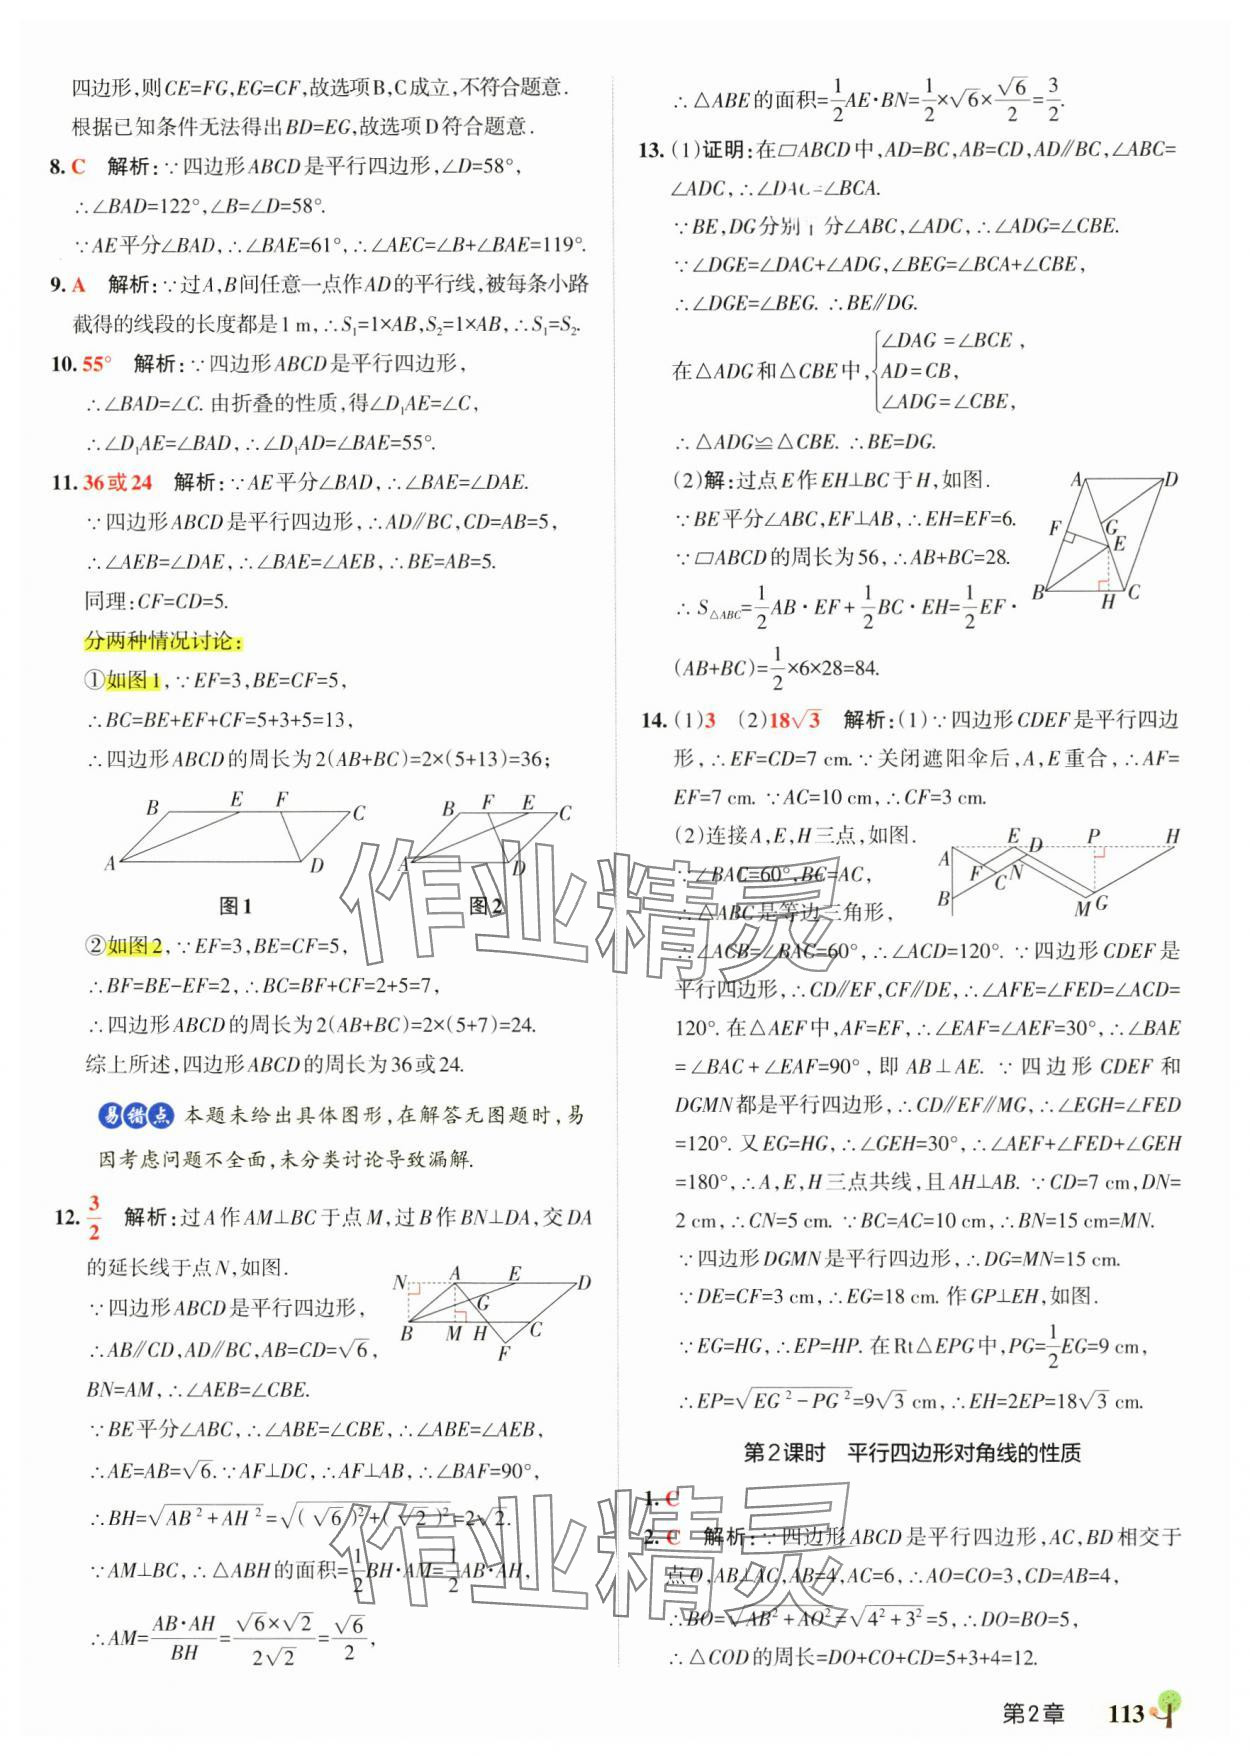 四边形,则CE=FG,EG=CF,故选项B,C成立,不符合题意.
根据已知条件无法得出BD=EG,故选项D符合题意.
8. C 解析:∵四边形ABCD是平行四边形,∠D=58°,
∴∠BAD=122°,∠B=∠D=58°.
∵AE平分∠BAD,∴∠BAE=61°,∴∠AEC=∠B+∠BAE=119°.
9. A 解析:∵过A,B间任意一点作AD的平行线,被每条小路
截得的线段的长度都是1 m,∴S₁=1×AB,S₂=1×AB,∴S₁=S₂.
10. 55° 解析:∵四边形ABCD是平行四边形,
∴∠BAD=∠C. 由折叠的性质,得∠D₁AE=∠C,
∴∠D₁AE=∠BAD,∴∠D₁AD=∠BAE=55°.
11. 36或24 解析:∵AE平分∠BAD,∴∠BAE=∠DAE.
∵四边形ABCD是平行四边形,∴AD∥BC,CD=AB=5,
∴∠AEB=∠DAE,∴∠BAE=∠AEB,∴BE=AB=5.
同理:CF=CD=5.
分两种情况讨论:
①如图1,∵EF=3,BE=CF=5,
∴BC=BE+EF+CF=5+3+5=13,
∴四边形ABCD的周长为2(AB+BC)=2×(5+13)=36;
B E F C A D
B F E C A D
图1 图2
②如图2,∵EF=3,BE=CF=5,
∴BF=BE-EF=2,∴BC=BF+CF=2+5=7,
∴四边形ABCD的周长为2(AB+BC)=2×(5+7)=24.
综上所述,四边形ABCD的周长为36或24.
易错点 本题未给出具体图形,在解答无图题时,易
因考虑问题不全面,未分类讨论导致漏解.
12. 3/2 解析:过A作AM⊥BC于点M,过B作BN⊥DA,交DA
的延长线于点N,如图.
N A E D G B M H C F
∵四边形ABCD是平行四边形,
∴AB∥CD,AD∥BC,AB=CD=√6,
BN=AM,∴∠AEB=∠CBE.
∵BE平分∠ABC,∴∠ABE=∠CBE,∴∠ABE=∠AEB,
∴AE=AB=√6.∵AF⊥DC,∴AF⊥AB,∴∠BAF=90°,
∴BH=√(AB²+AH²)=√((√6)²+(√2)²)=2√2.
∵AM⊥BC,∴△ABH的面积=1/2BH·AM=1/2AB·AH,
∴AM=AB·AH/BH=√6×√2/2√2=√6/2,
∴△ABE的面积=1/2AE·BN=1/2×√6×√6/2=3/2.
13. (1)证明:在▱ABCD中,AD=BC,AB=CD,AD∥BC,∠ABC=
∠ADC,∴∠DAC=∠BCA.
∵BE,DG分别平分∠ABC,∠ADC,∴∠ADG=∠CBE.
∵∠DGE=∠DAC+∠ADG,∠BEG=∠BCA+∠CBE,
∴∠DGE=∠BEG. ∴BE∥DG.
在△ADG和△CBE中,{∠DAG=∠BCE, AD=CB, ∠ADG=∠CBE,
∴△ADG≌△CBE. ∴BE=DG.
(2)解:过点E作EH⊥BC于H,如图.
∵BE平分∠ABC,EF⊥AB,∴EH=EF=6.
∵▱ABCD的周长为56,∴AB+BC=28.
∴S△ABC=1/2AB·EF+1/2BC·EH=1/2EF·
(AB+BC)=1/2×6×28=84.
A D F G E B H C
14. (1)3 (2)18√3 解析:(1)∵四边形CDEF是平行四边
形,∴EF=CD=7 cm.∵关闭遮阳伞后,A,E重合,∴AF=
EF=7 cm. ∵AC=10 cm,∴CF=3 cm.
(2)连接A,E,H三点,如图.
A E D P H F C N B M G
∵∠BAC=60°,BC=AC,
∴△ABC是等边三角形,
∴∠ACB=∠BAC=60°,∴∠ACD=120°. ∵四边形CDEF是
平行四边形,∴CD∥EF,CF∥DE,∴∠AFE=∠FED=∠ACD=
120°. 在△AEF中,AF=EF,∴∠EAF=∠AEF=30°,∴∠BAE
=∠BAC+∠EAF=90°,即AB⊥AE. ∵四边形CDEF和
DGMN都是平行四边形,∴CD∥EF∥MG,∴∠EGH=∠FED
=120°. 又EG=HG,∴∠GEH=30°,∴∠AEF+∠FED+∠GEH
=180°,∴A,E,H三点共线,且AH⊥AB. ∵CD=7 cm,DN=
2 cm,∴CN=5 cm. ∵BC=AC=10 cm,∴BN=15 cm=MN.
∵四边形DGMN是平行四边形,∴DG=MN=15 cm.
∵DE=CF=3 cm,∴EG=18 cm. 作GP⊥EH,如图.
∵EG=HG,∴EP=HP. 在Rt△EPG中,PG=1/2EG=9 cm,
∴EP=√(EG²-PG²)=9√3 cm,∴EH=2EP=18√3 cm.
第2课时 平行四边形对角线的性质
1. C
2. C 解析:∵四边形ABCD是平行四边形,AC,BD相交于
点O,AB⊥AC,AB=4,AC=6,∴AO=CO=3,CD=AB=4,
∴BO=√(AB²+AO²)=√(4²+3²)=5,∴DO=BO=5,
∴△COD的周长=DO+CO+CD=5+3+4=12.
第2章 113
作业精灵
作业精灵